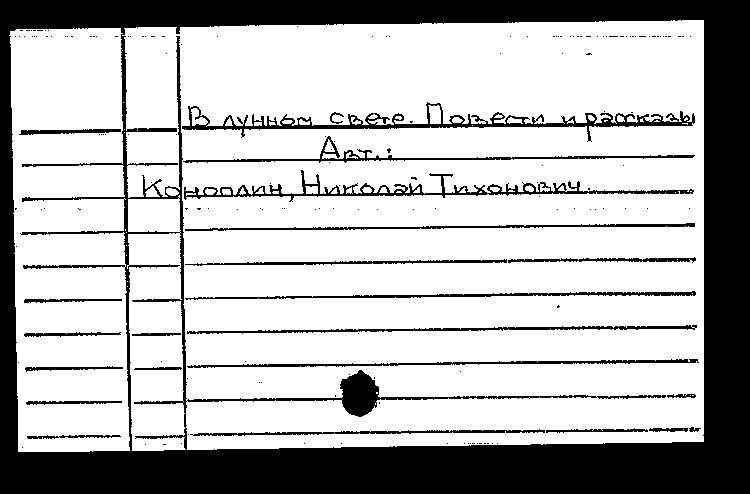 В лунном свете. Повести и рассказы
Авт.:
Коноплин, Николай Тихонович.